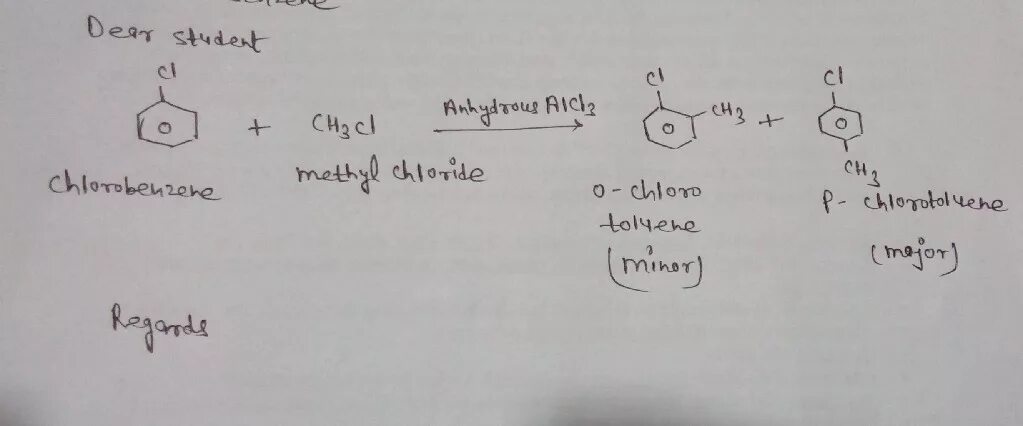 Dear student
Cl
+ CH3Cl Anhydrous AlCl3 Cl CH3 + Cl
CH3
Chlorobenzene methyl chloride o-chloro P- chlorotoluene
toluene
(minor) (major)
Regards